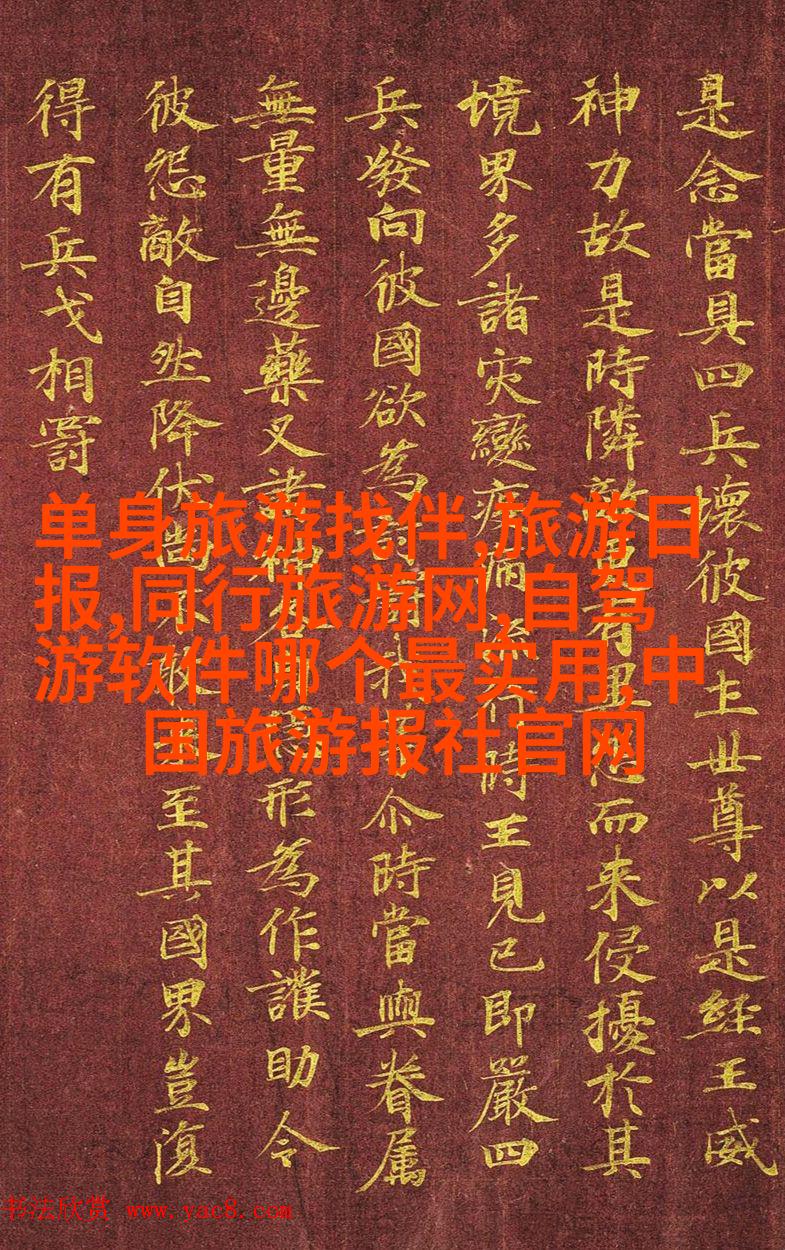 是念當具四兵壞彼國土世尊以是經王威
神力故是時隣敵更有異怨而来侵擾於其
境界多諸灾變疫病流行時王見已即嚴四
兵發向彼國欲為討罰我等尒時當與眷属
無量無邊藥叉諸神各自隱形為作護助令
彼怨敵自然降伏尚不敢來至其國界豈復
得有兵戈相罸
单身旅游找伴,旅游日
报,同行旅游网,自驾
游软件哪个最实用,中
国旅游报社官网
书法欣赏 www.yac8.com